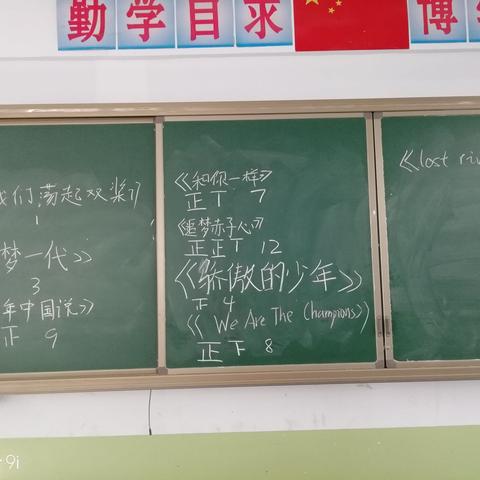 勤学自求
博
我们荡起双桨》
1
梦一代》
3
年中国说》
正 9
《和你一样》
正丅 7
《追梦赤子心》
正正丅 12
《骄傲的少年》
正 4
《We Are The Champions》
正下 8
《lost ri
9i